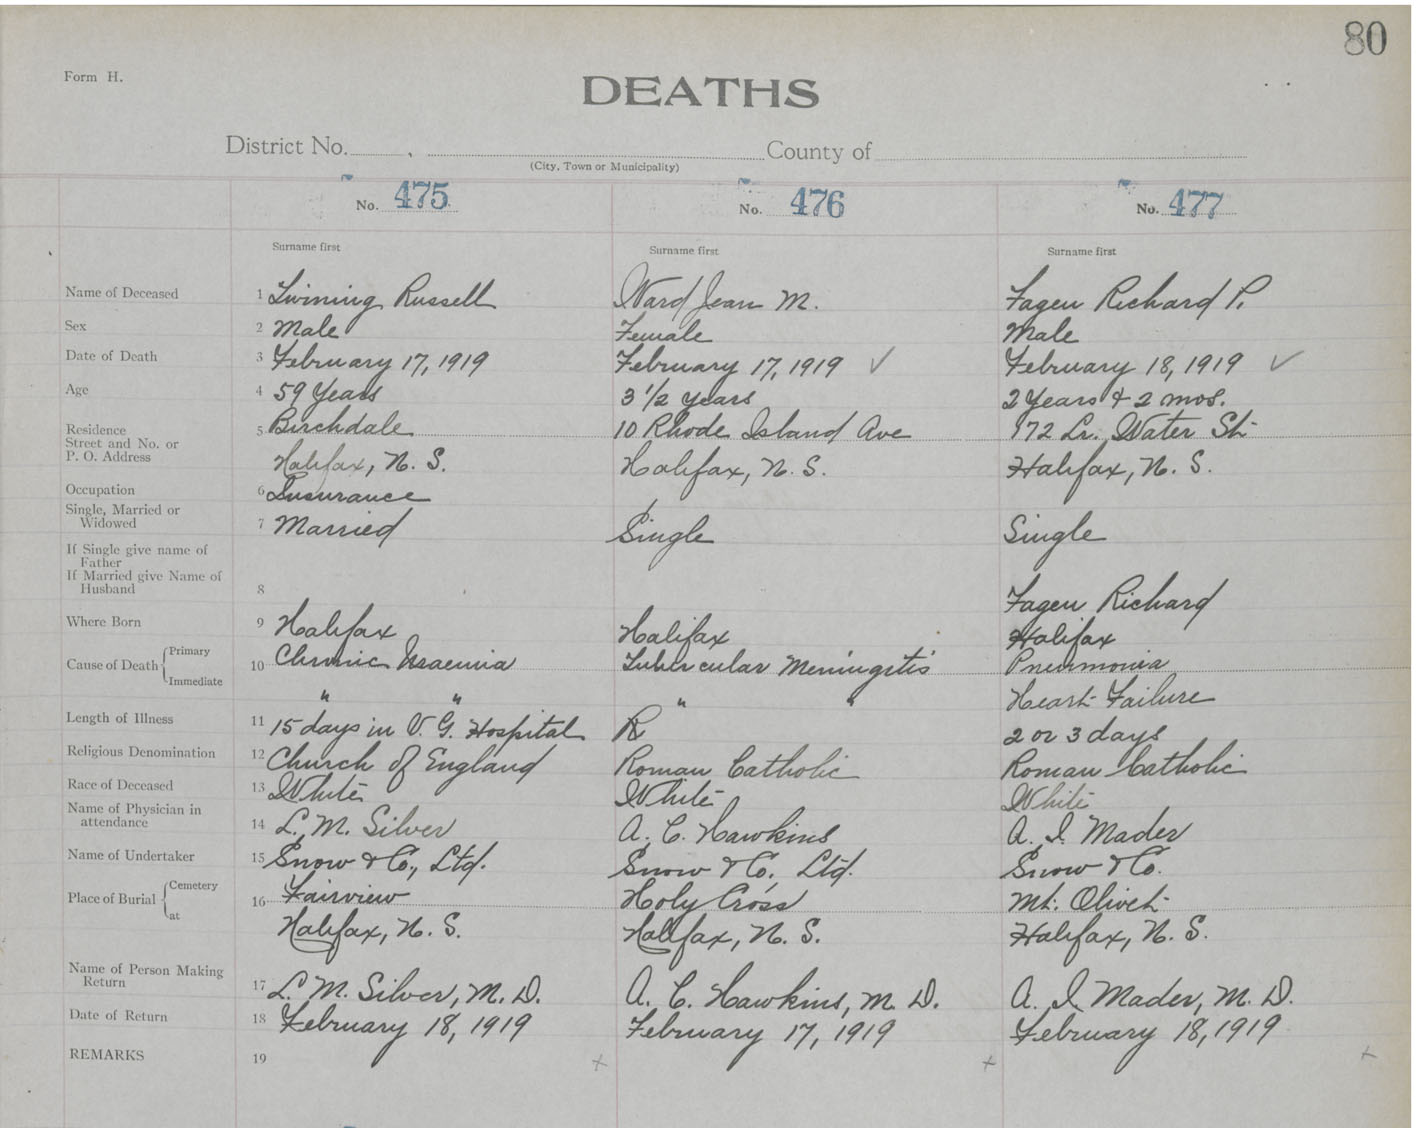 80
Form H.
DEATHS
District No. County of
(City, Town or Municipality)
No. 475 No. 476 No. 477
Surname first Surname first Surname first
Name of Deceased 1 Twining Russell Ward Jean M. Fagen Richard P.
Sex 2 Male Female Male
Date of Death 3 February 17, 1919 February 17, 1919 ✓ February 18, 1919 ✓
Age 4 59 Years 3 1/2 years 2 Years & 2 mos.
Residence
Street and No. or
P. O. Address
5 Birchdale 10 Rhode Island Ave 172 Lr. Water St.
Halifax, N. S. Halifax, N. S. Halifax, N. S.
Occupation 6 Insurance
Single, Married or
Widowed
7 Married Single Single
If Single give name of
Father
If Married give Name of
Husband
8 Fagen Richard
Where Born 9 Halifax Halifax Halifax
Cause of Death Primary
Immediate
10 Chronic Uraemia Tubercular Meningitis Pneumonia
" " " " Heart Failure
Length of Illness 11 15 days in V. G. Hospital 2 or 3 days
Religious Denomination 12 Church of England Roman Catholic Roman Catholic
Race of Deceased 13 White White White
Name of Physician in
attendance
14 L. M. Silver A. C. Hawkins A. I. Mader
Name of Undertaker 15 Snow & Co., Ltd. Snow & Co. Ltd. Snow & Co.
Place of Burial Cemetery
at
16 Fairview Holy Cross Mt. Olivet
Halifax, N. S. Halifax, N. S. Halifax, N. S.
Name of Person Making
Return
17 L. M. Silver, M. D. A. C. Hawkins, M. D. A. I. Mader, M. D.
Date of Return 18 February 18, 1919 February 17, 1919 February 18, 1919
REMARKS 19